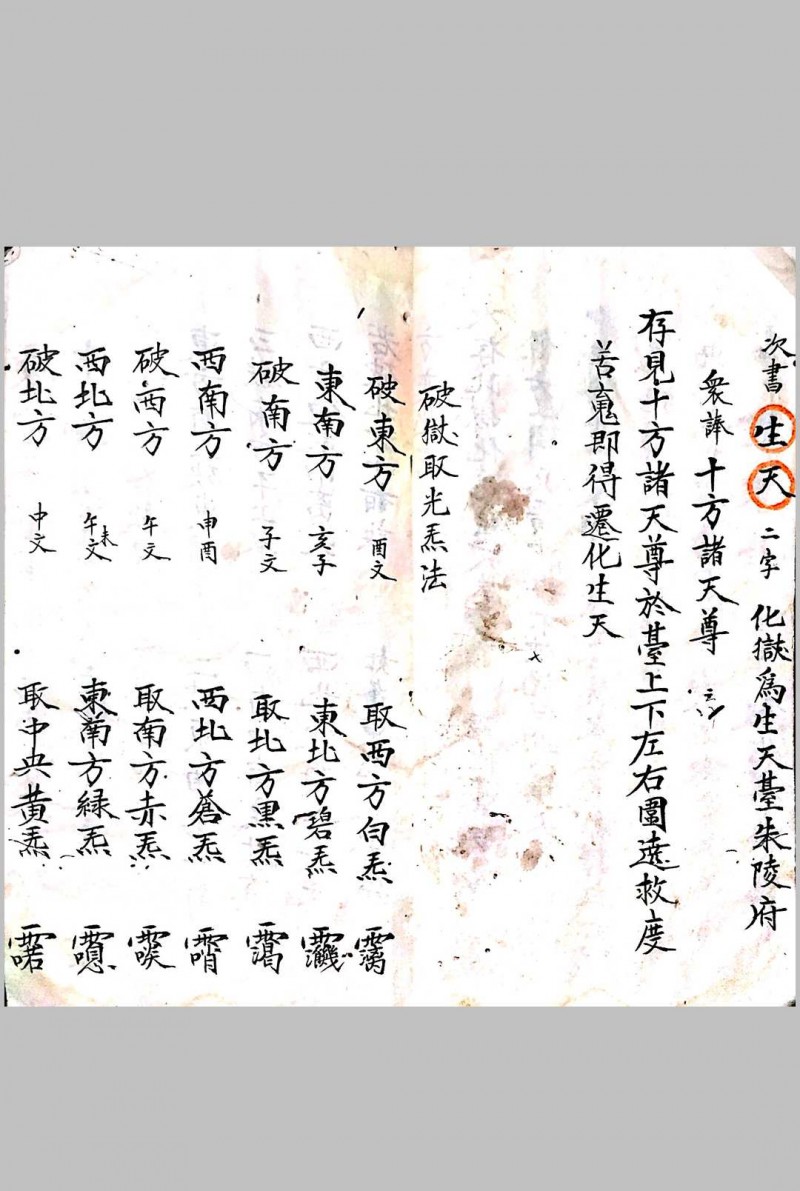 次書生天二字 化獄為生天臺朱陵府
衆諱 十方諸天尊 云〻
存見十方諸天尊於臺上下左右圍遶救度
苦䰟即得遷化生天
破獄取光炁法
破東方 酉文 取西方白炁
東南方 亥子 東北方碧炁
破南方 子文 取北方黑炁
西南方 申酉 西北方蒼炁
破西方 午文 取南方赤炁
西北方 午未文 東南方緑炁
破北方 中文 取中央黃炁